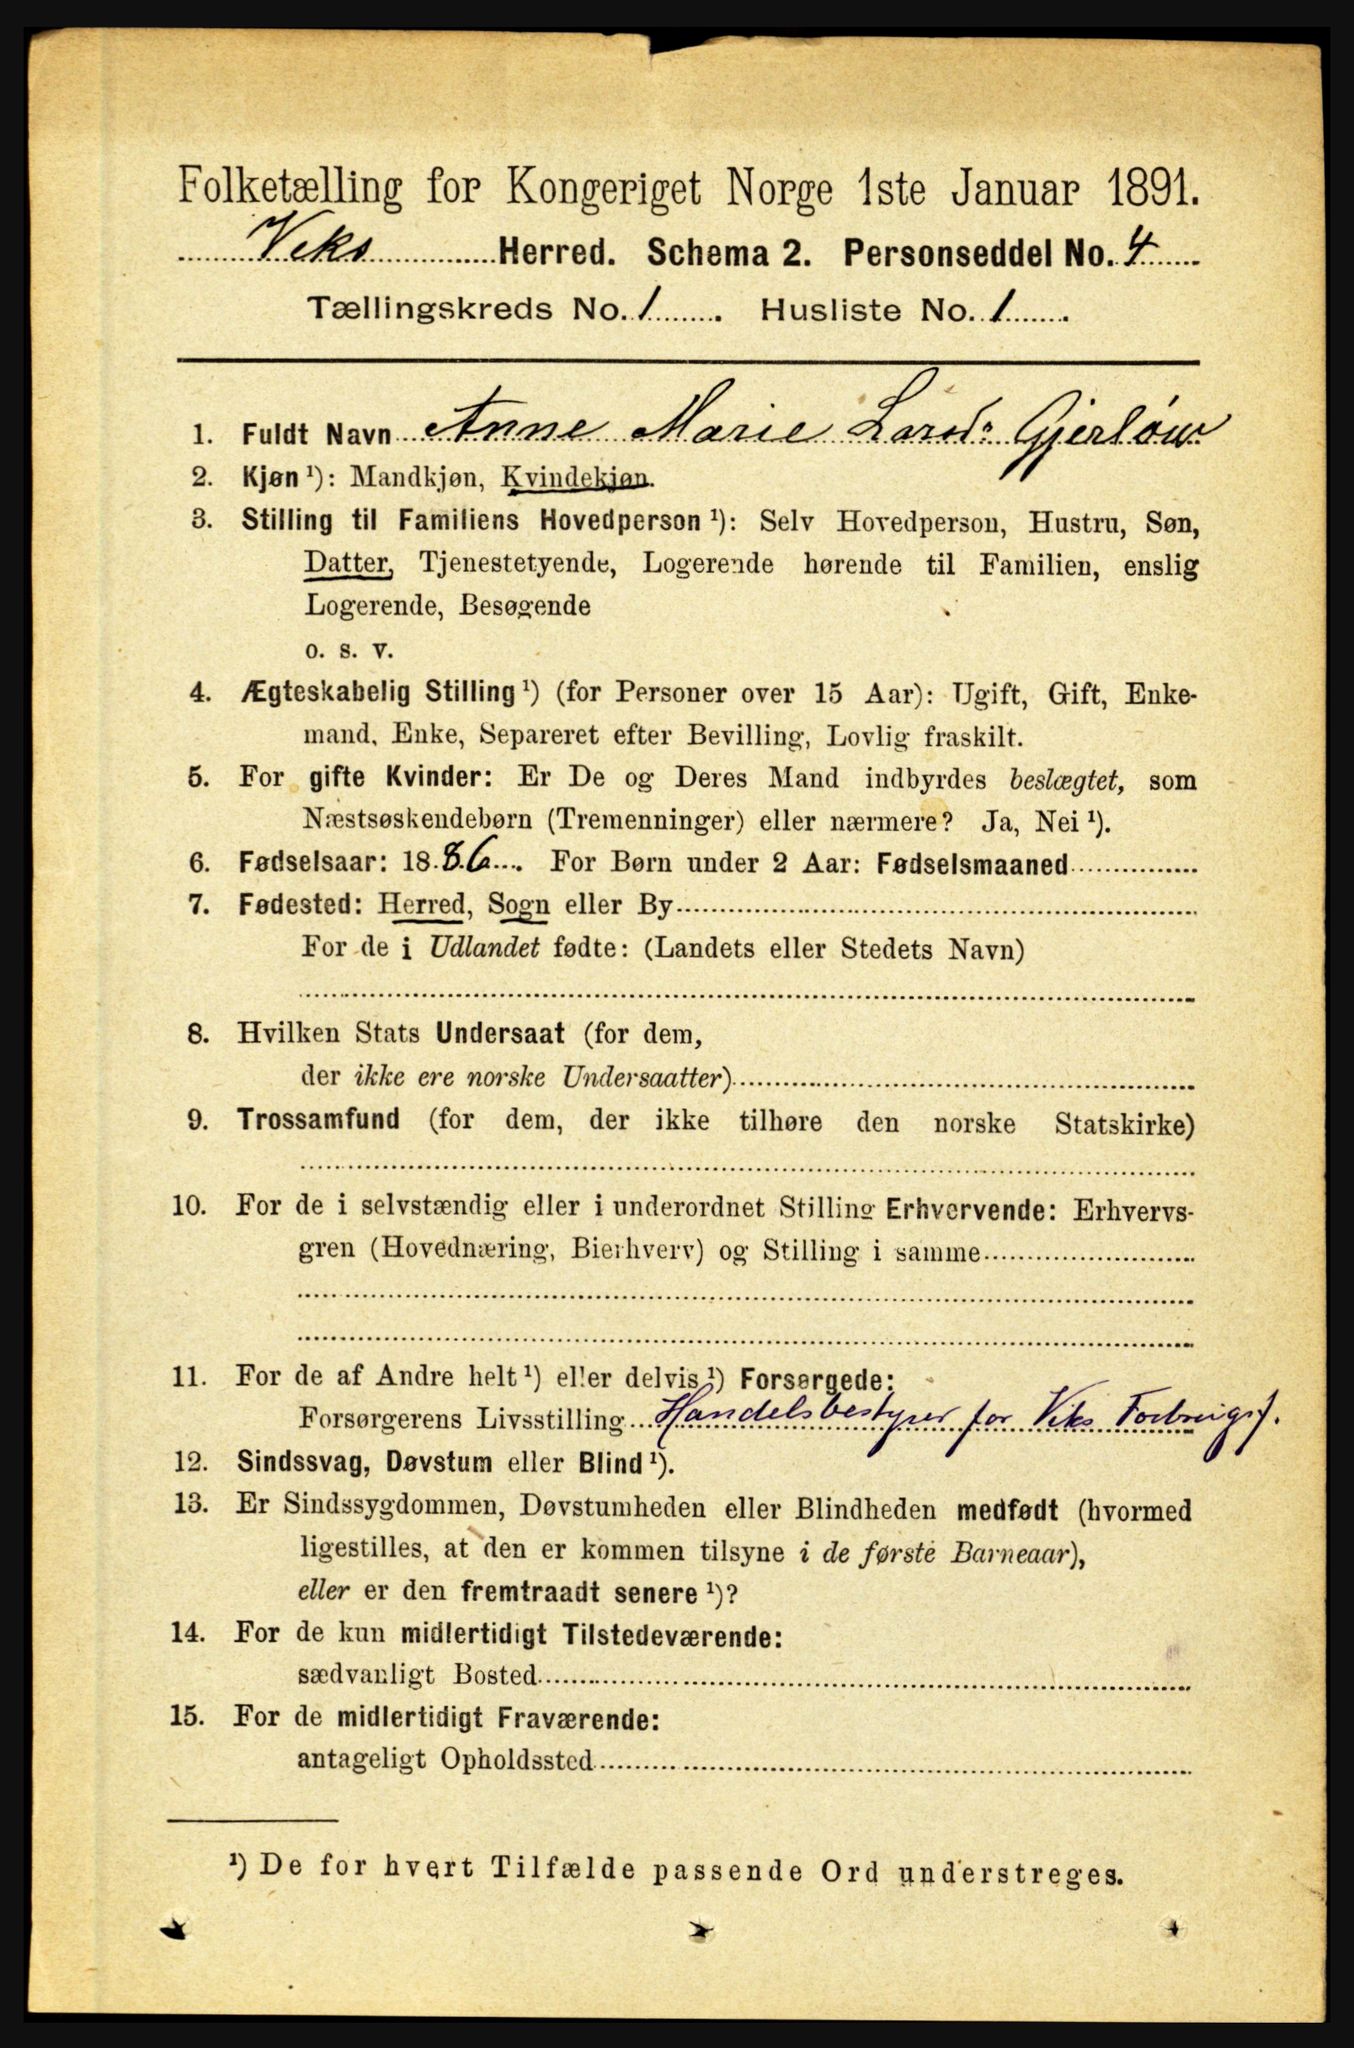 Folketælling for Kongeriget Norge 1ste Januar 1891.
Viks Herred. Schema 2. Personseddel No. 4
Tællingskreds No. 1. Husliste No. 1.
1. Fuldt Navn Anne Marie Larsd: Gjerløw
2. Kjøn ¹): Mandkjøn, Kvindekjøn.
3. Stilling til Familiens Hovedperson ¹): Selv Hovedperson, Hustru, Søn,
Datter, Tjenestetyende, Logerende hørende til Familien, enslig
Logerende, Besøgende
o. s. v.
4. Ægteskabelig Stilling ¹) (for Personer over 15 Aar): Ugift, Gift, Enke-
mand, Enke, Separeret efter Bevilling, Lovlig fraskilt.
5. For gifte Kvinder: Er De og Deres Mand indbyrdes beslægtet, som
Næstsøskendebørn (Tremenninger) eller nærmere? Ja, Nei ¹).
6. Fødselsaar: 1886. For Børn under 2 Aar: Fødselsmaaned
7. Fødested: Herred, Sogn eller By
For de i Udlandet fødte: (Landets eller Stedets Navn)
8. Hvilken Stats Undersaat (for dem,
der ikke ere norske Undersaatter)
9. Trossamfund (for dem, der ikke tilhøre den norske Statskirke)
10. For de i selvstændig eller i underordnet Stilling Erhvervende: Erhvervs-
gren (Hovednæring, Bierhverv) og Stilling i samme
11. For de af Andre helt ¹) eller delvis ¹) Forsørgede:
Forsørgerens Livsstilling Handelsbestyrer for Viks
12. Sindssvag, Døvstum eller Blind ¹).
13. Er Sindssygdommen, Døvstumheden eller Blindheden medfødt (hvormed
ligestilles, at den er kommen tilsyne i de første Barneaar),
eller er den fremtraadt senere ¹)?
14. For de kun midlertidigt Tilstedeværende:
sædvanligt Bosted
15. For de midlertidigt Fraværende:
antageligt Opholdssted
¹) De for hvert Tilfælde passende Ord understreges.